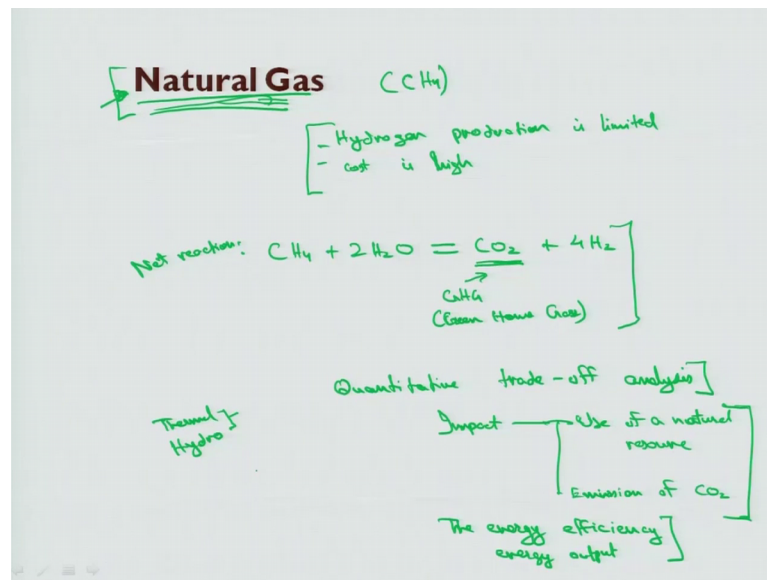 Natural Gas (CH4)
- Hydrogen production is limited
- cost is high
Net reaction: CH4 + 2H2O = CO2 + 4H2
GHG
(Green House Gas)
Quantitative trade-off analysis
Thermal
Hydro
Impact
Use of a natural
resource
Emission of CO2
The energy efficiency
energy output